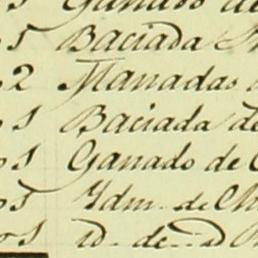 Ganado de
5 Baciada
2 Manadas
1 Baciada de
1 Ganado de C
5 Ydm. de Ch
1 id. de